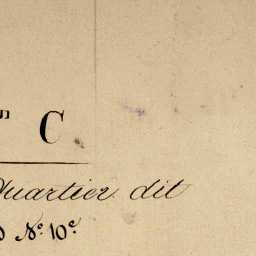 n C
Quartier dit
No. 10e